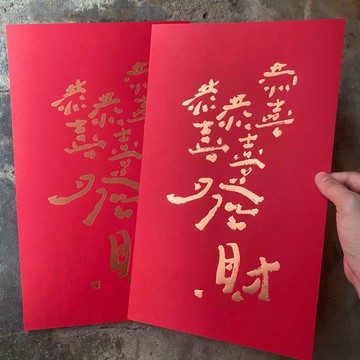 恭喜
恭喜發財
恭喜
恭喜
恭喜發財
恭喜